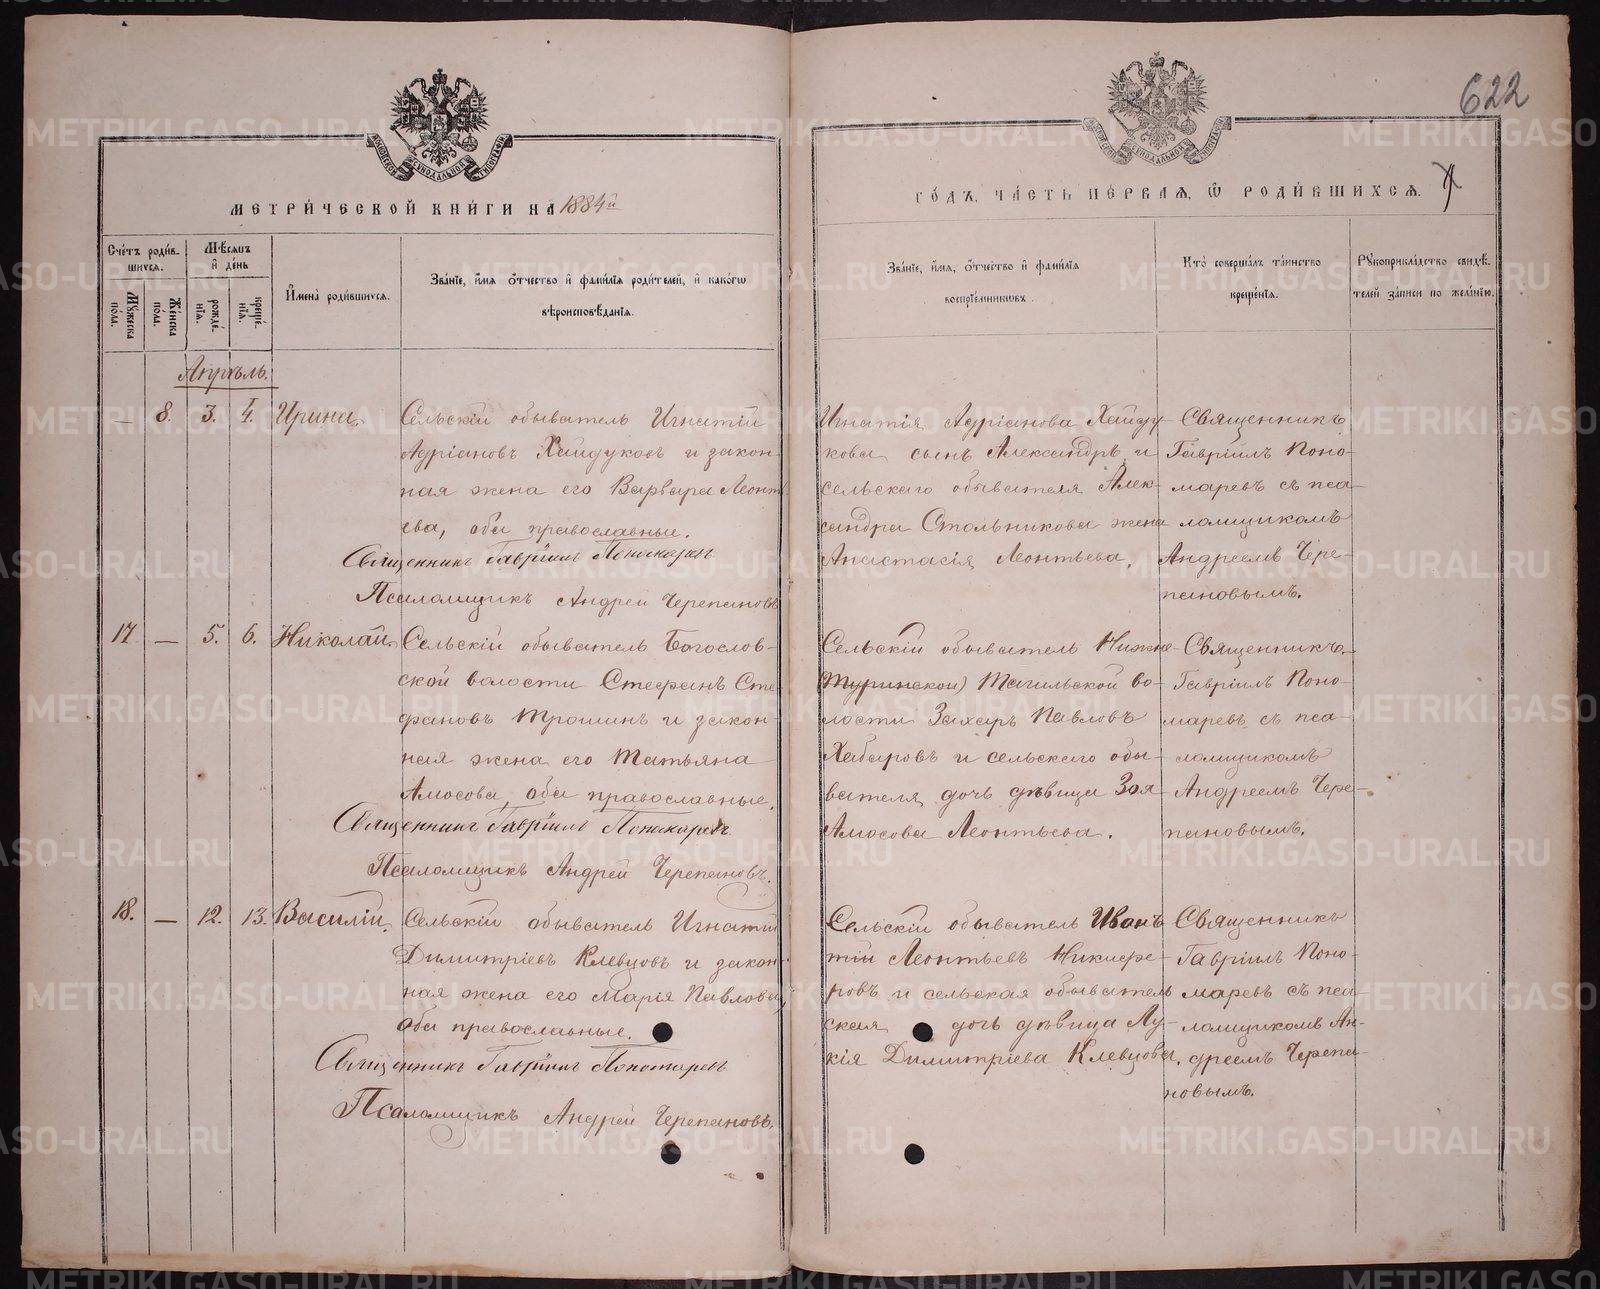 622
МЕТРИ́ЧЕСКОЙ КНИ́ГИ НА 1884й
ГО́ДЪ, ЧА́СТЬ ПЕ́РВАЯ, Ѡ РОДИ́ВШИХСЯ.
Сче́тъ роди́в-
шихся.
Мѣсяцъ
и де́нь
Му́жеска по́ла.
Же́нска по́ла.
рожде́нїѧ.
креще́нїѧ.
И́мена роди́вшихся.
Зва́нїе, и́мѧ ѻ́тчество и фами́лїѧ роди́телей, и како́гѡ
вѣроисповѣ́данїѧ.
Зва́нїе, и́мѧ, ѻ́тчество и фами́лїѧ
воспрїе́мникѡвъ.
Кто̀ соверша́лъ та́инство
креще́нїѧ.
Рꙋкоприкла́дство свидѣ́-
телей за́писи по жела́нїю.
Апрѣль.
— 8. 3. 4. Ирина.
Сельскій обыватель Игнатій
Адріановъ Хайдуковъ и закон-
ная жена его Варвара Леонть-
ева, оба православные.
Священникъ Гавріилъ Пономаревъ
Псаломщикъ Андрей Черепановъ
Игнатія Адріанова Хайду-
кова сынъ Александръ и
сельскаго обывателя Алек-
сандра Стольникова жена
Анастасія Леонтьева.
Священникъ
Гавріилъ Поно-
маревъ съ пса-
ломщикомъ
Андреемъ Чере-
пановымъ.
17 — 5. 6. Николай.
Сельскій обыватель Богослов-
ской волости Стефанъ Сте-
фановъ Трошинъ и закон-
ная жена его Татьяна
Амосова, оба православные.
Священникъ Гавріилъ Пономаревъ
Псаломщикъ Андрей Черепановъ.
Сельскій обыватель Нижне-
(Туринской) Тагильской во-
лости Захаръ Павловъ
Хабаровъ и сельскаго обы-
вателя дочь дѣвица Зоя
Амосова Леонтьева.
Священникъ
Гавріилъ Поно-
маревъ съ пса-
ломщикомъ
Андреемъ Чере-
пановымъ.
18. — 12. 13. Василій.
Сельскій обыватель Игнатій
Димитріевъ Клевцовъ и закон-
ная жена его Марія Павлова,
оба православные.
Священникъ Гавріилъ Пономаревъ
Псаломщикъ Андрей Черепановъ.
Сельскій обыватель Иванъ
тій Леонтьевъ Никифо-
ровъ и сельская обыватель
ская дочь дѣвица Лу-
кія Димитріева Клевцова.
Священникъ
Гавріилъ Поно-
маревъ съ пса-
ломщикомъ Ан-
дреемъ Черепа-
новымъ.
METRIKI.GASO-URAL.RU